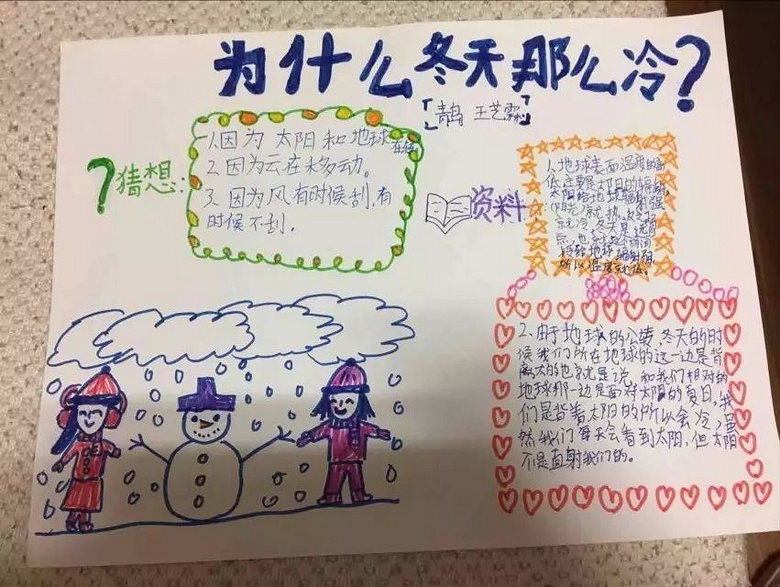 为什么冬天那么冷?
「青鹊 王艺霖」
?猜想:
1.因为太阳和地球
2.因为云在移动。
3.因为风有时候刮,有
时候不刮.
资料
1.地球表面温度的高
低,主要是太阳的辐射,
太阳给地球辐射强
就热,
就冷,冬天是
所以温度就低。
2.由于地球的公转,冬天的时
候我们所在地球的这一边是背
离太阳的也就是说,和我们相对的
地球那一边是面对太阳的夏日,我
们是背着太阳的所以会冷,虽
然我们每天会看到太阳,但太阳
不是直射我们的。